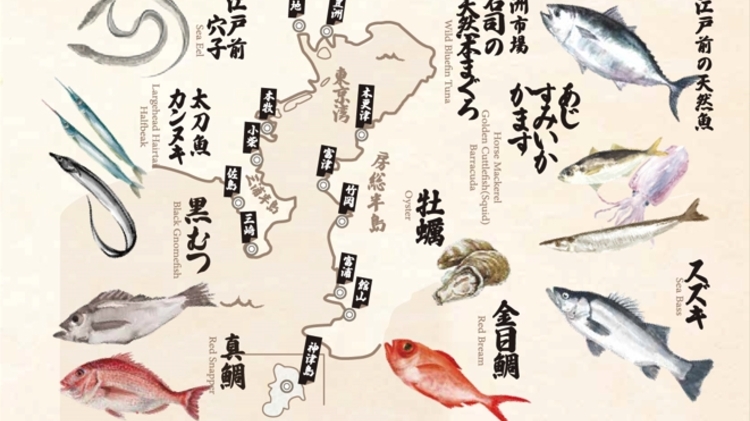 江戸前の天然魚
洲市場
石司の
天然本まぐろ
Wild Bluefin Tuna
あじ
すみいか
かます
Horse Mackerel
Golden Cuttlefish(Squid)
Barracuda
スズキ
Sea Bass
牡蠣
Oyster
金目鯛
Red Bream
江戸前
穴子
Sea Eel
太刀魚
カンヌキ
Largehead Hairta
Halfbeak
黒むつ
Black Gnomefish
真鯛
Red Snapper
地
豊洲
東京湾
木更津
本牧
小柴
富津
房総半島
佐島
三浦半島
竹岡
三崎
富浦
館山
神津島